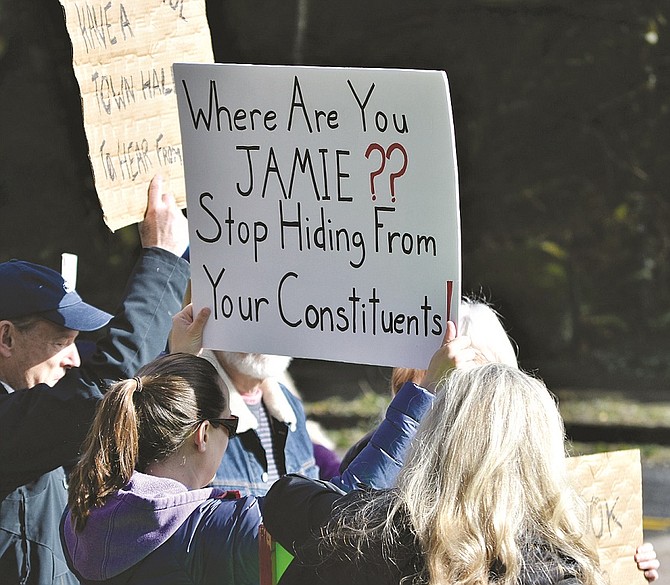 HAVE A
TOWN HALL
TO HEAR FROM
Where Are You
JAMIE ??
Stop Hiding From
Your Constituents!
UK